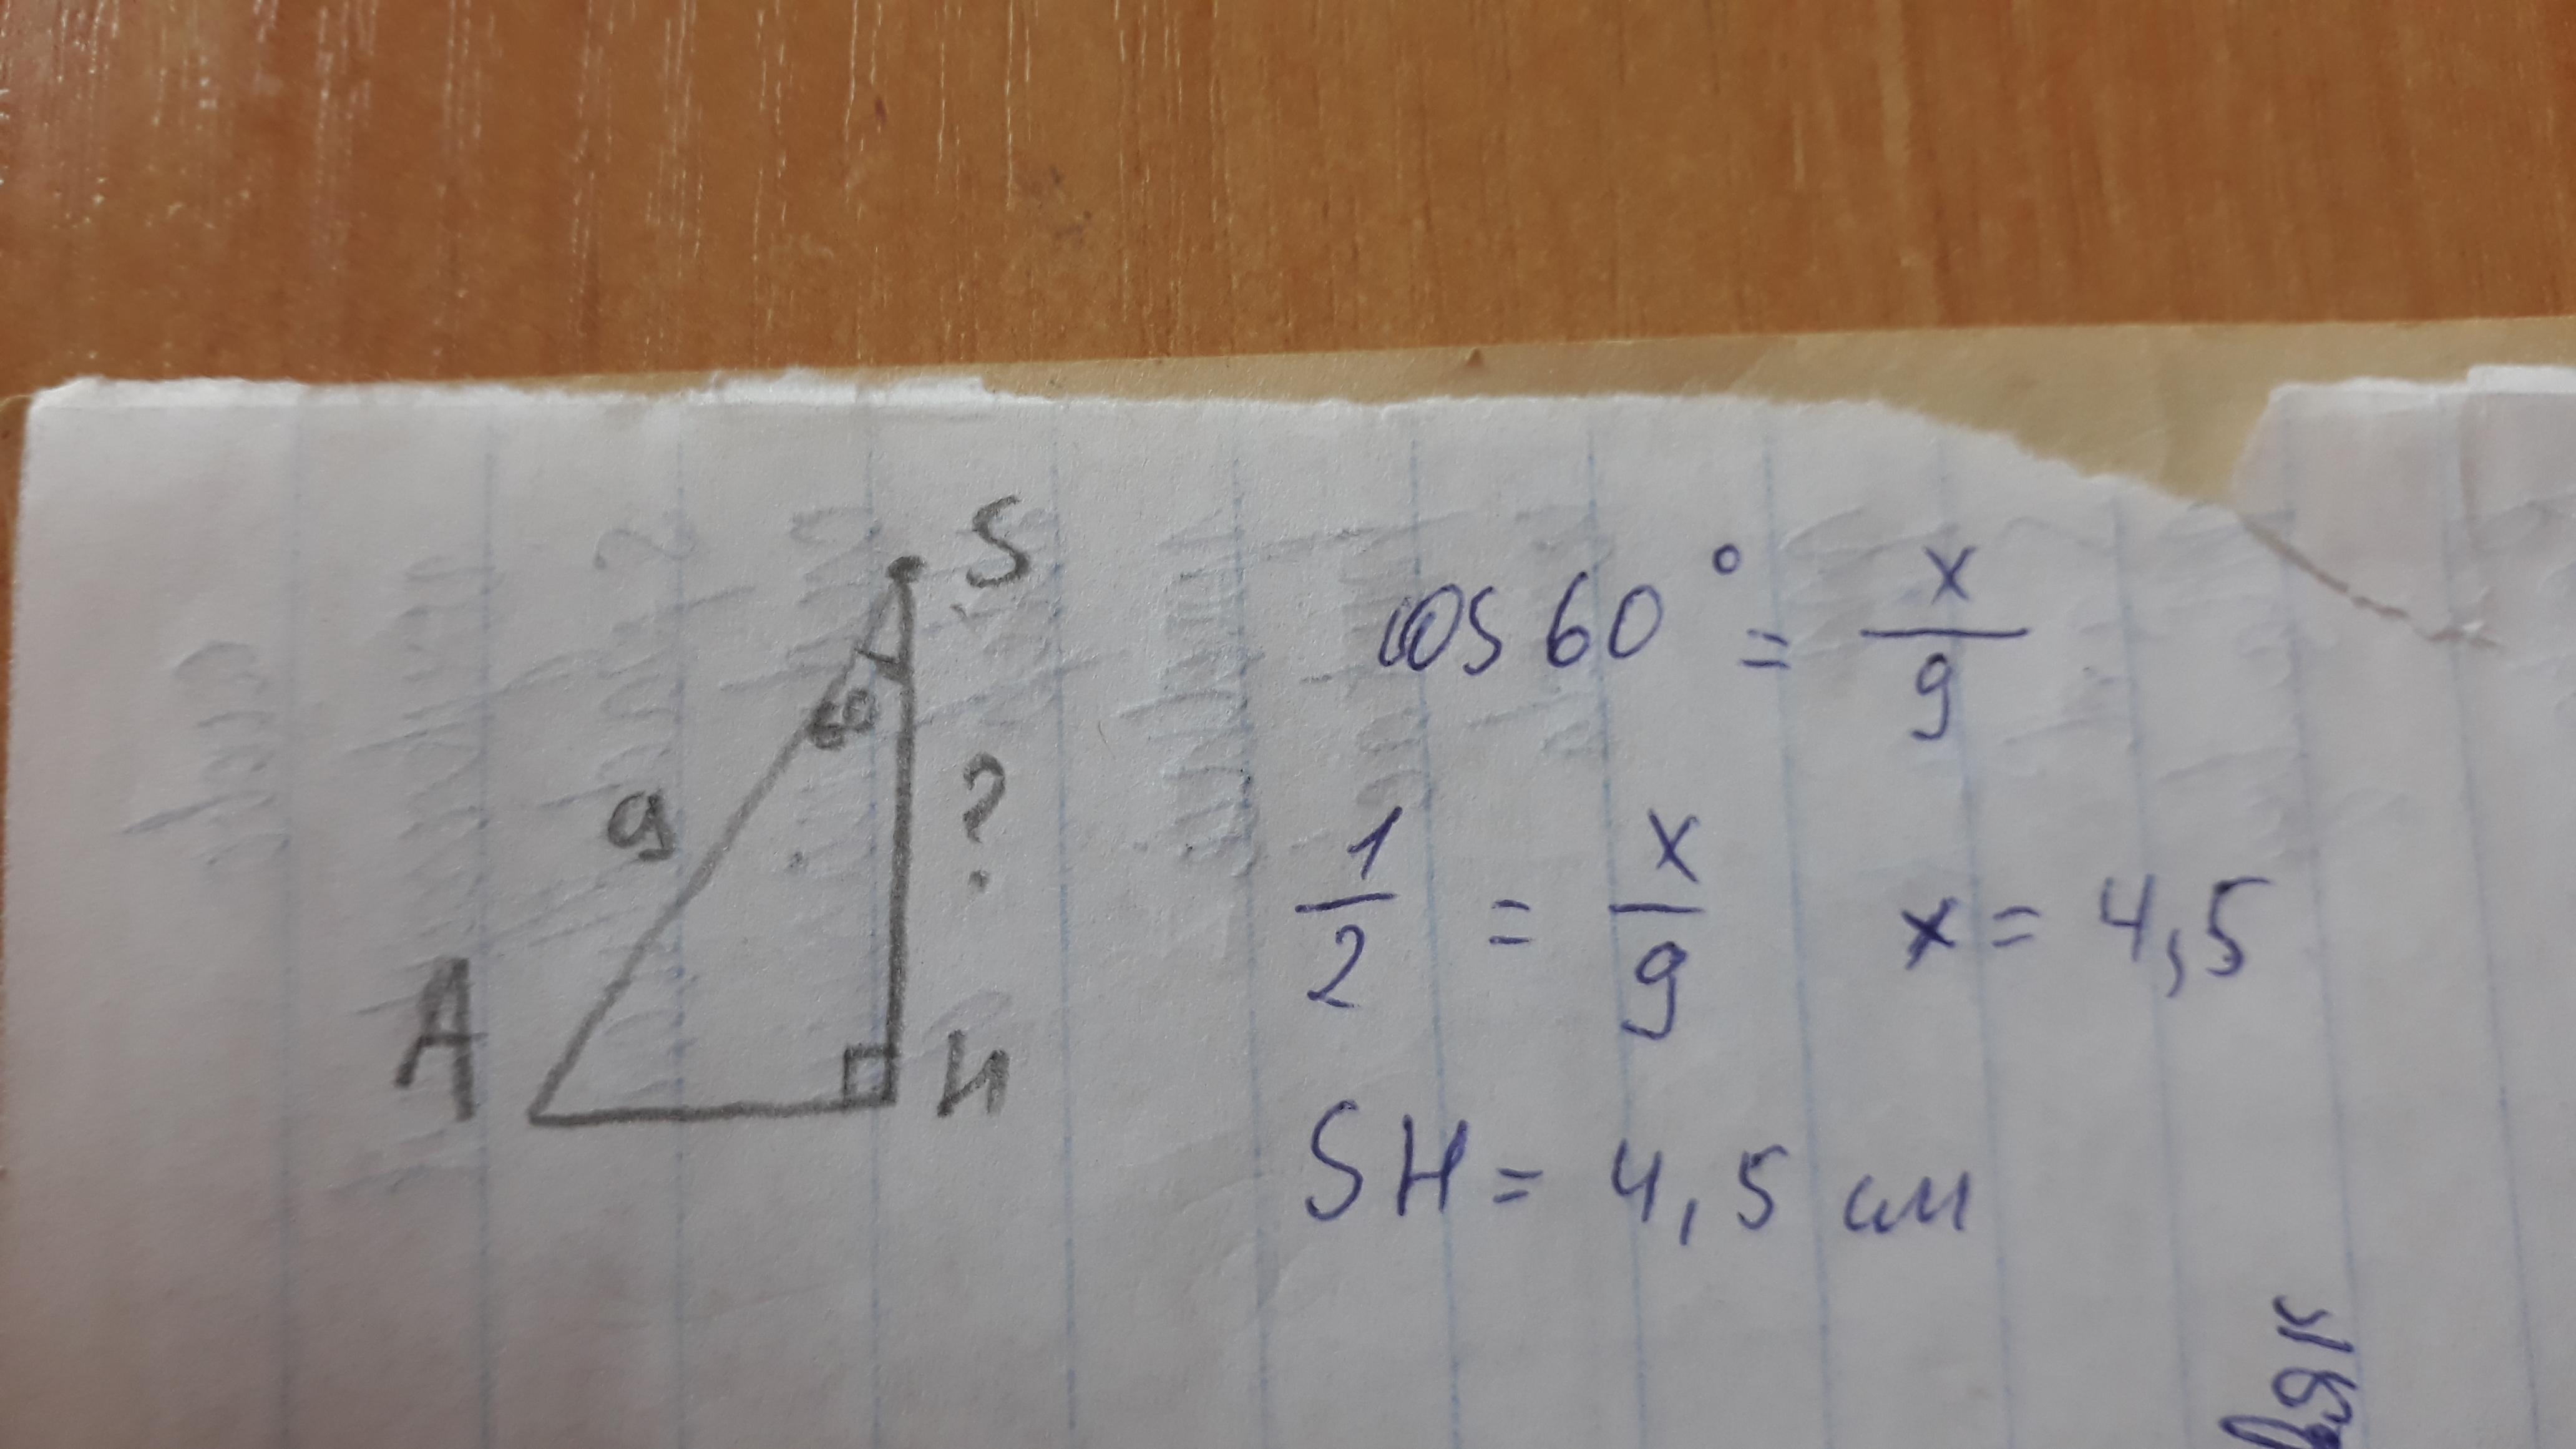 S
60
9
?
A
H
cos 60° = x/9
1/2 = x/9 x = 4,5
SH = 4,5 см